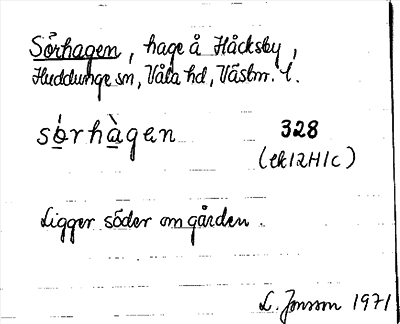 Sörhagen, hage å Håcksby,
Huddunge sn, Våla hd, Västm. l.
sö́rhàgen 328
(ek 12H1c)
Ligger söder om gården.
L. Jonsson 1971